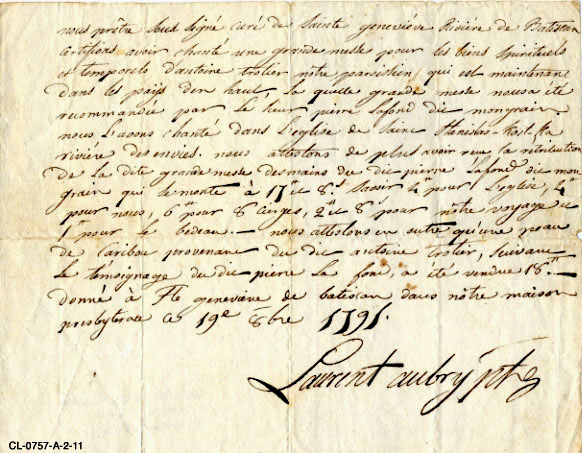 nous prêtre sous signé curé de Sainte geneviève Rivière de Batiscan
certifions avoir chanté une grande messe pour les biens spirituels
et temporels d'antoine trotier nôtre paroissien qui est maintenant
dans les pays d'en haut, la quelle grande messe nous a été
recommandée par le sieur pierre Lafond dit mongrain
nous l'avons chanté dans l'eglise de Saint Stanislas-Kostka
rivière des envies. nous attestons de plus avoir reçu la retribution
de la dite grande messe des mains du dit pierre Lafond dit mon
grain qui se monte à 17# et 8s savoir 4# pour l'eglise, 4#
pour nous, 6# pour 8 cierges, 2# et 8s pour nôtre voyage et
1# pour le bedeau. — nous attestons en outre qu'une peau
de Caribou provenant du dit antoine trotier, suivant
le témoignage du dit pierre la fond, a été vendue 18#. —
donné à Ste geneviève de batiscan dans nôtre maison
presbyterale ce 19e 8bre 1791.
Laurent aubry ptre
CL-0757-A-2-11